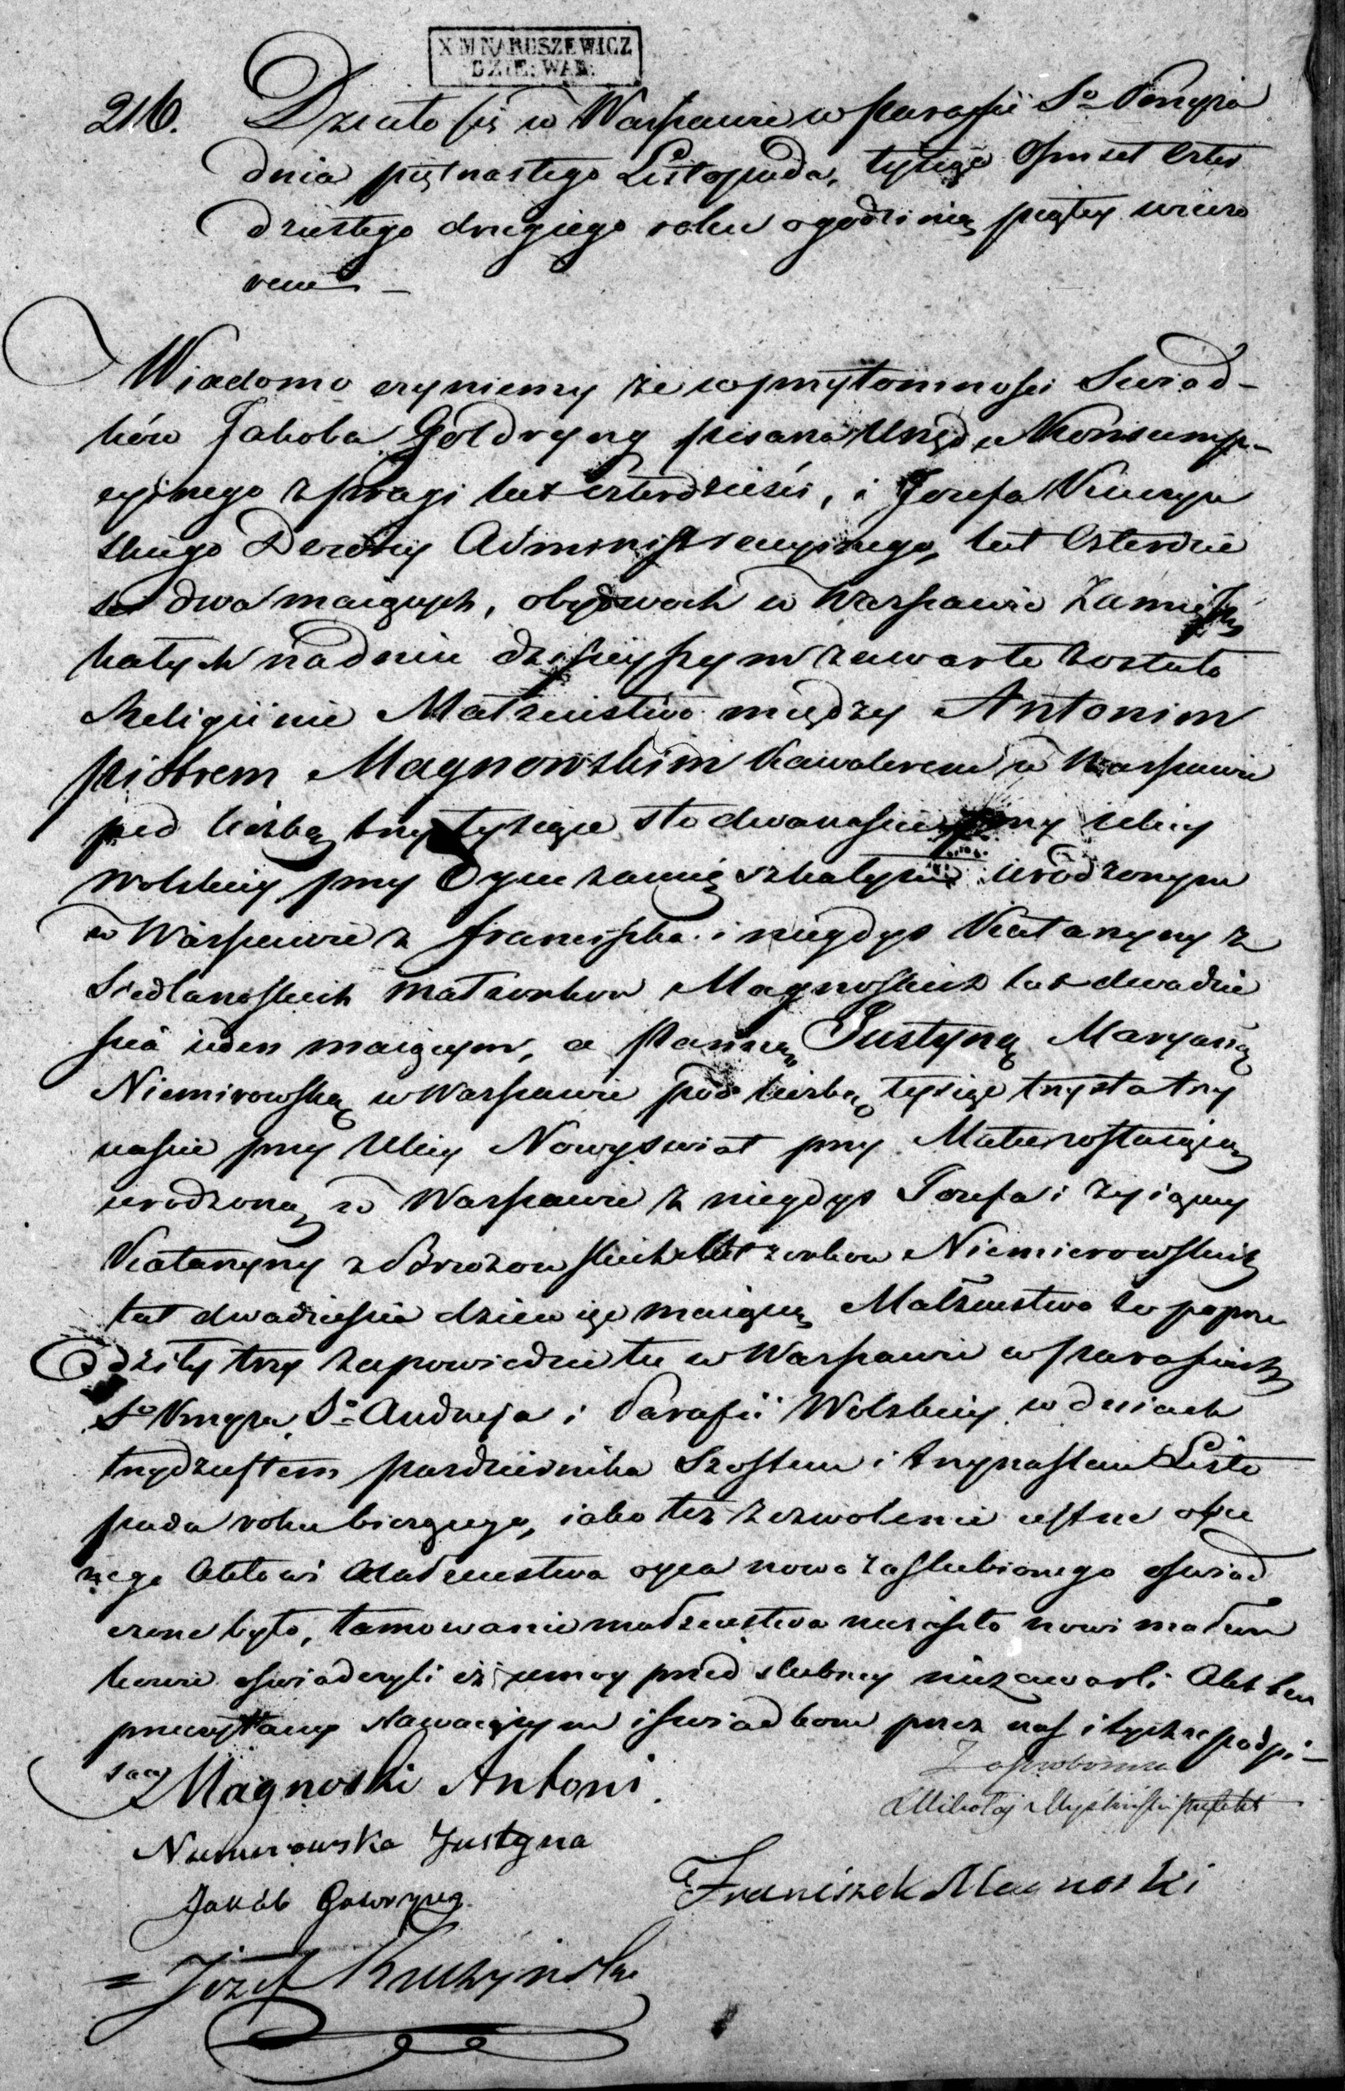 X M NARUSZEWICZ
DZIE: WAR:
216. Działo się w Warszawie w Parafii Sgo Krzyża
dnia piętnastego Listopada, tysiąc ośmset czter
dziestego drugiego roku o godzinie piątey wieczo
rem –
Wiadomo czyniemy że w przytomności Świad-
ków Jakoba Goldryng pisarza Urzędu Konsump-
cyjnego z Pragi lat czterdzieści, i Jozefa Kuczyń
skiego Dozorcy Administracyjnego, lat czterdzie
ści dwa maiących, obydwoch w Warszawie Zamiesz
kałych na dniu dzisieyszym zawarte zostało
Religijnie Małżeństwo między Antonim
Piotrem Magnowskim Kawalerem w Warszawie
pod liczbą trzy tysiące sto dwanaście przy ulicy
Wolskiey przy Oycu zamieszkałym urodzonym
w Warszawie z Franciszka i niegdys Katarzyny z
Siedlanoskich małżonkow Magnoskich lat dwadzie
ścia ieden maiącym, a Panną Justyną Maryanną
Niemirowską w Warszawie pod liczbą tysiąc trzysta trzy
naście przy Ulicy Nowyswiat przy Matce zostaiącą
urodzoną w Warszawie z niegdys Jozefa i żyiącey
Katarzyny z Brzozowskich Małżonkow Niemierowskich
lat dwadzieścia dziewięc maiącą Małżeństwo to poprze
dziły trzy zapowiedzie tu w Warszawie w Parafiach
Sgo Krzyża, Sgo Andrzeja i Parafii Wolskiey w dniach
trzydziestem Pazdziernika Szostem i trzynastem Listo
pada roku bieżącego, iako też zezwolenie ustne obe
cnego Aktowi Małżeństwa oyca nowo zaślubionego oświad
czone było, tamowanie małżeństwa niezaszło nowi małżon
kowie oświadczyli iż umowy przed slubney niezawarli Akt ten
przeczytany Stawaiącym i świadkom przez nas i tychże podpi–
sany
Magnoski Antoni.
Niemirowska Justyna
Jakób Goldryng
= Józef Kuczyński
Mikołaj Myśliński
Franciszek Magnoski